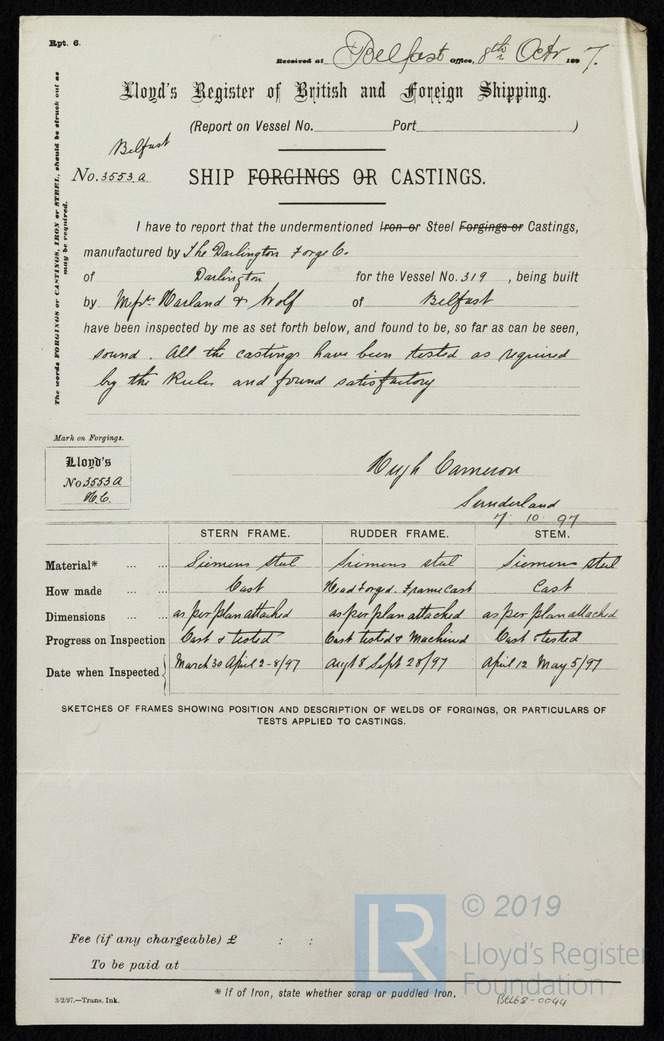 Rpt. 6.
Received at Belfast Office, 8th Octr 1897.
Lloyd's Register of British and Foreign Shipping.
(Report on Vessel No. Port )
Belfast
No. 3553 A
SHIP FORGINGS OR CASTINGS.
The words FORGINGS or CASTINGS, IRON or STEEL, should be struck out as
may be required.
I have to report that the undermentioned Iron or Steel Forgings or Castings,
manufactured by The Darlington Forge Co.
of Darlington for the Vessel No. 319 , being built
by Messrs. Harland & Wolf of Belfast
have been inspected by me as set forth below, and found to be, so far as can be seen,
sound. All the castings have been tested as required
by the Rules and found satisfactory
Mark on Forgings.
Lloyd's
No 3553 A
H.C.
Hugh Cameron
Sunderland
7. 10. 97
STERN FRAME. RUDDER FRAME. STEM.
Material* ... ... Siemens steel Siemens steel Siemens steel
How made ... ... Cast Head Forged. Frame Cast Cast
Dimensions ... ... as per plan attached as per plan attached as per plan attached
Progress on Inspection Cast & tested Cast tested & Machined Cast & tested
Date when Inspected March 30 April 2-8/97 Augt 8 Sept 28/97 April 12 May 5/97
SKETCHES OF FRAMES SHOWING POSITION AND DESCRIPTION OF WELDS OF FORGINGS, OR PARTICULARS OF
TESTS APPLIED TO CASTINGS.
Fee (if any chargeable) £ : :
To be paid at
* If of Iron, state whether scrap or puddled Iron.
3/2/97.—Trans. Ink.
BEL68-0044
LR
© 2019
Lloyd's Register
Foundation